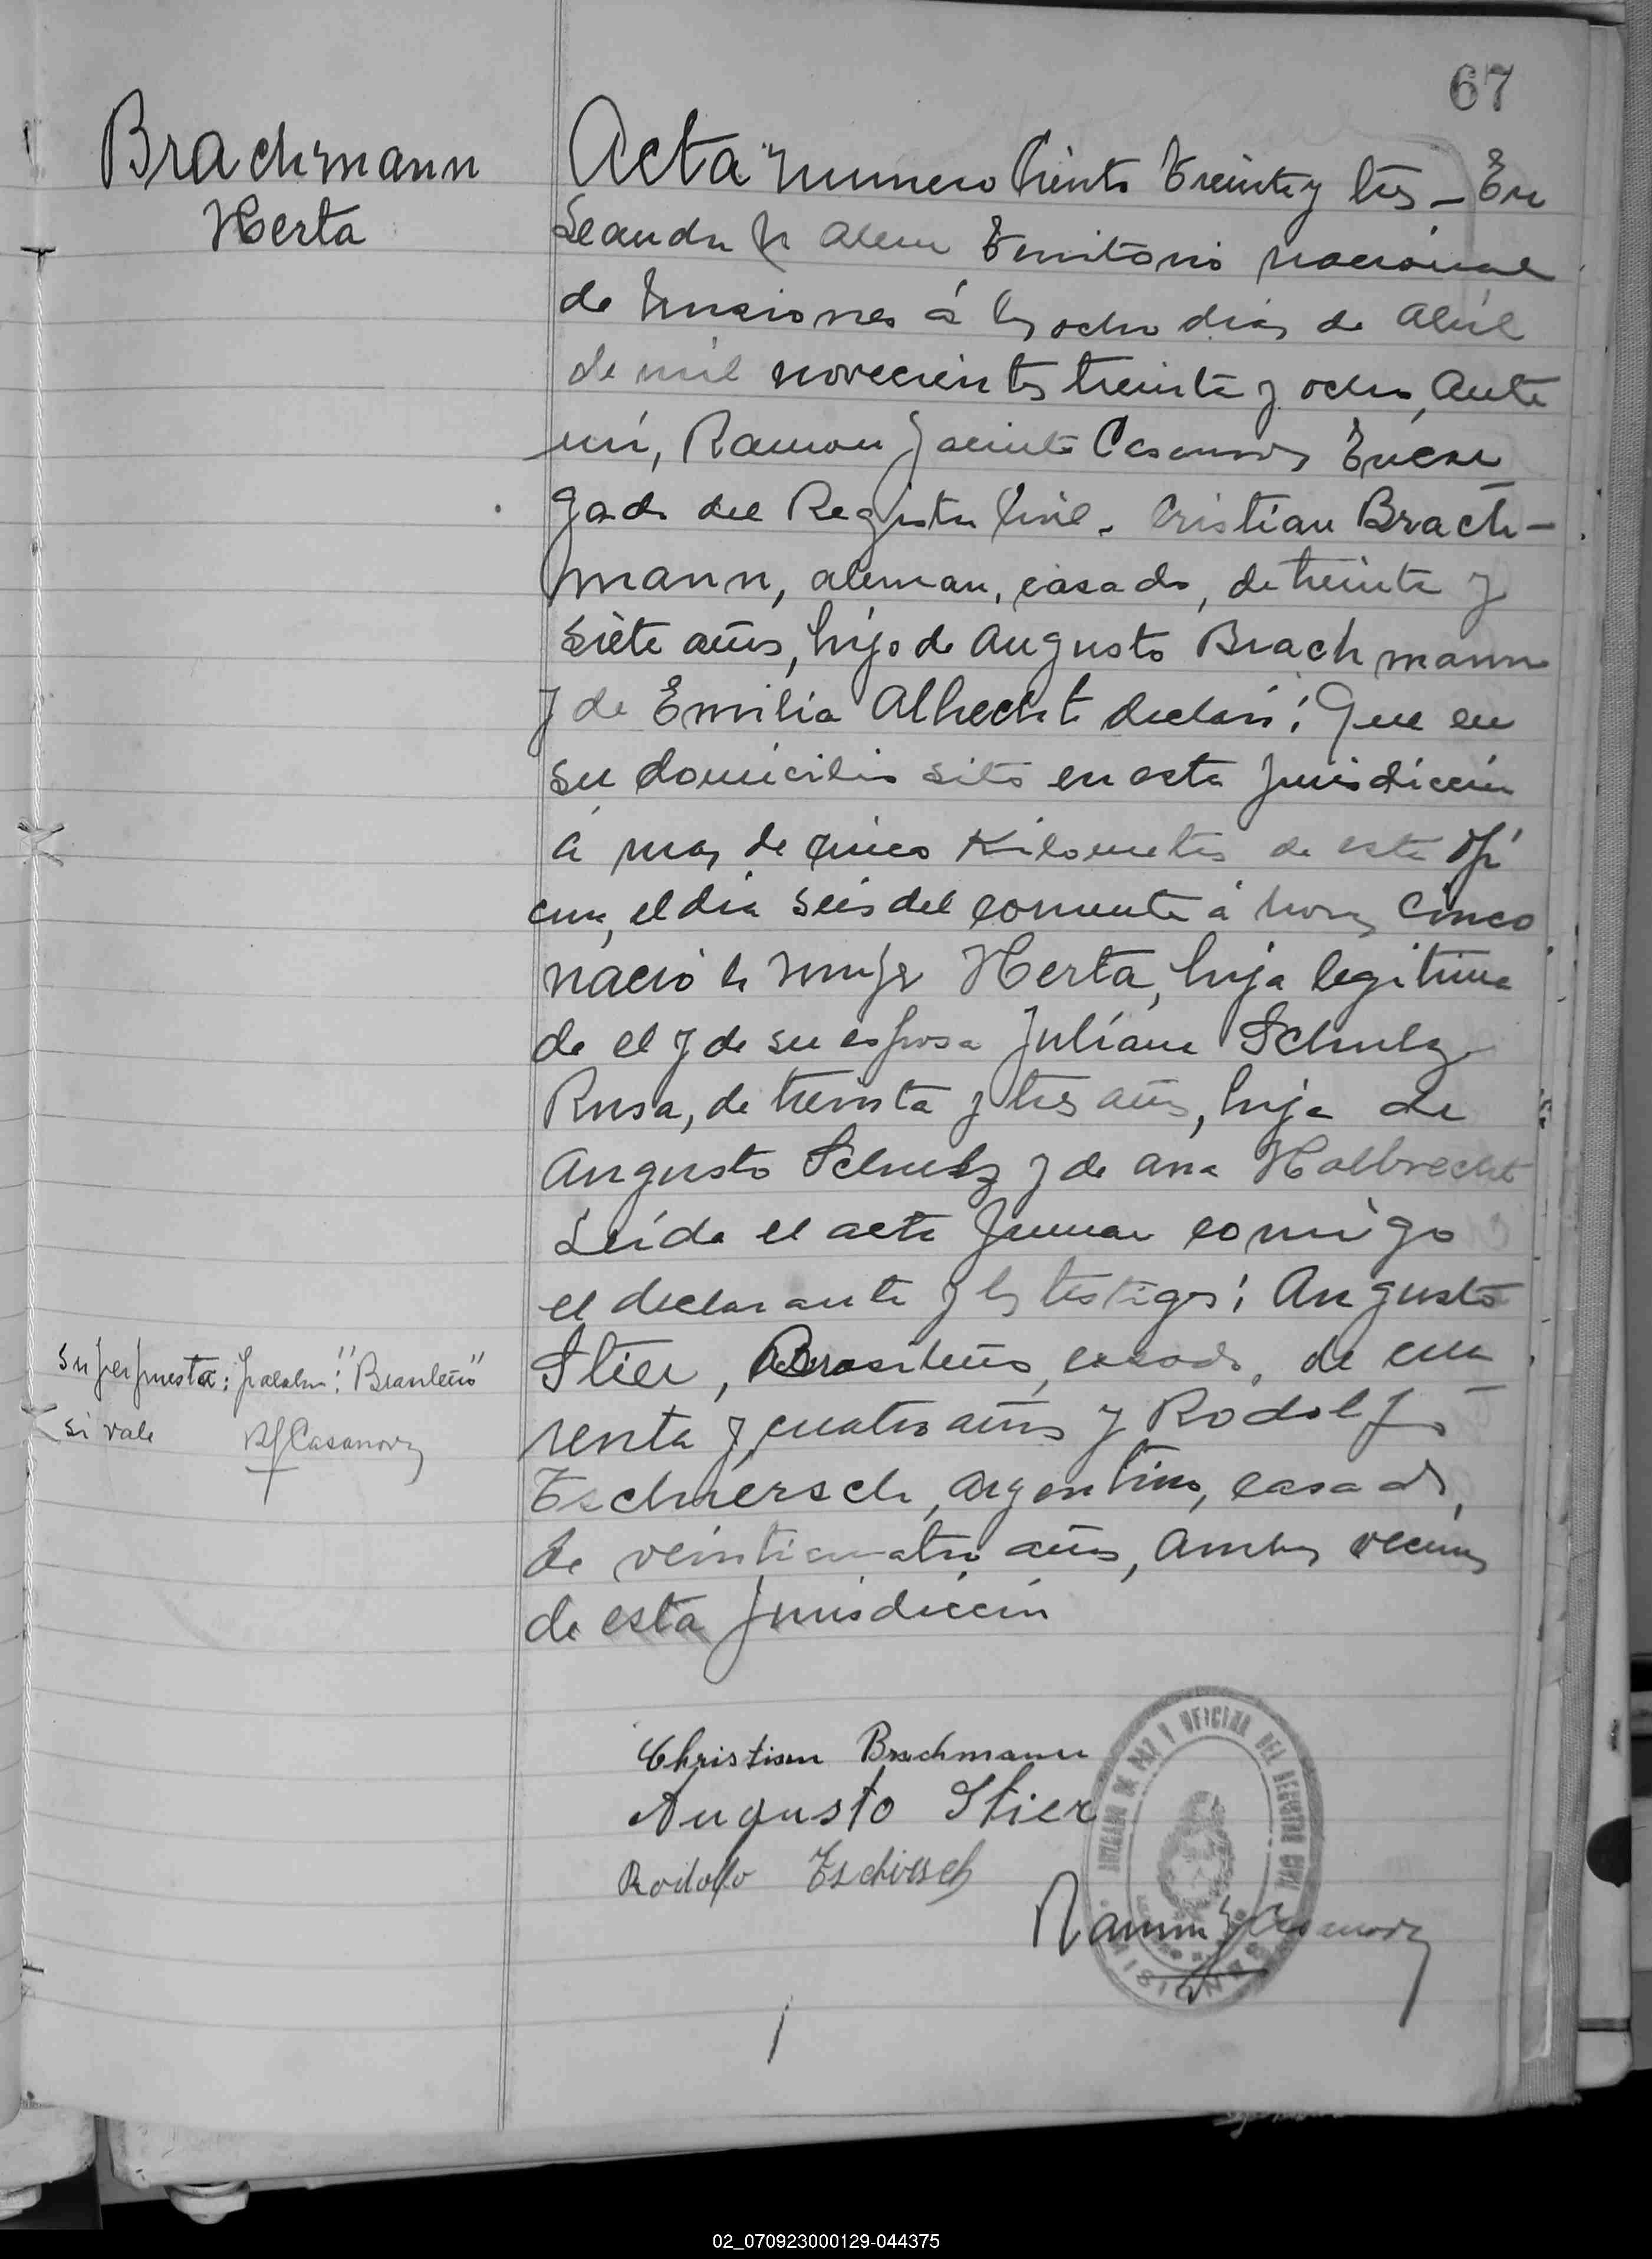 67
Brachmann
Herta
Acta numero Ciento Treinta y tres - En
Leandro N Alem Territorio nacional
de Misiones á los ocho dias de Abril
de mil novecientos treinta y ocho, ante
mi, Ramon Jacinto Casanova Encar
gado del Registro Civil. Cristian Brach-
mann, aleman, casado, de treinta y
siete años, hijo de Augusto Brachmann
y de Emilia Albrecht declaró: Que en
su domicilio sito en esta jurisdiccion
á mas de cinco Kilometros de esta ofi
cina, el dia seis del corriente á horas cinco
nació la mujer Herta, hija legitima
de el y de su esposa Juliana Schulz
Rusa, de treinta y tres años, hija de
Augusto Schulz y de Ana Halbrecht
Leída el acta firman conmigo
el declarante y los testigos: Augusto
Stier, Brasileño, casado, de cua
renta y cuatro años y Rodolfo
Eschiersch, argentino, casado,
de veinticuatro años, ambos vecinos
de esta jurisdiccion
superpuesta: palabra: "Brasileño"
si vale RJCasanova
Christian Brachmann
Augusto Stier
Rodolfo Eschiersch
Ramon J Casanova
JUZGADO DE PAZ Y OFICINA DEL REGISTRO CIVIL
MISIONES
02_070923000129-044375